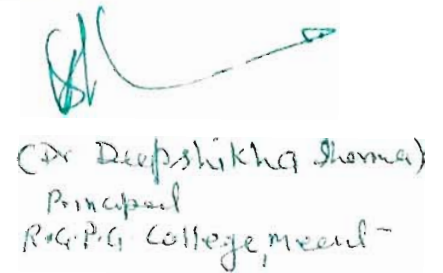 (Dr Deepshikha Sharma)
Principal
R.G.P.G. College, Meerut